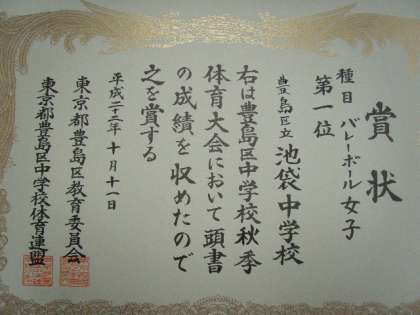 賞状
種目 バレーボール女子
第一位
豊島区立 池袋中学校
右は豊島区中学校秋季
体育大会において頭書
の成績を収めたので
之を賞する
平成二十三年十月十一日
東京都豊島区教育委員会
東京都豊島区中学校体育連盟